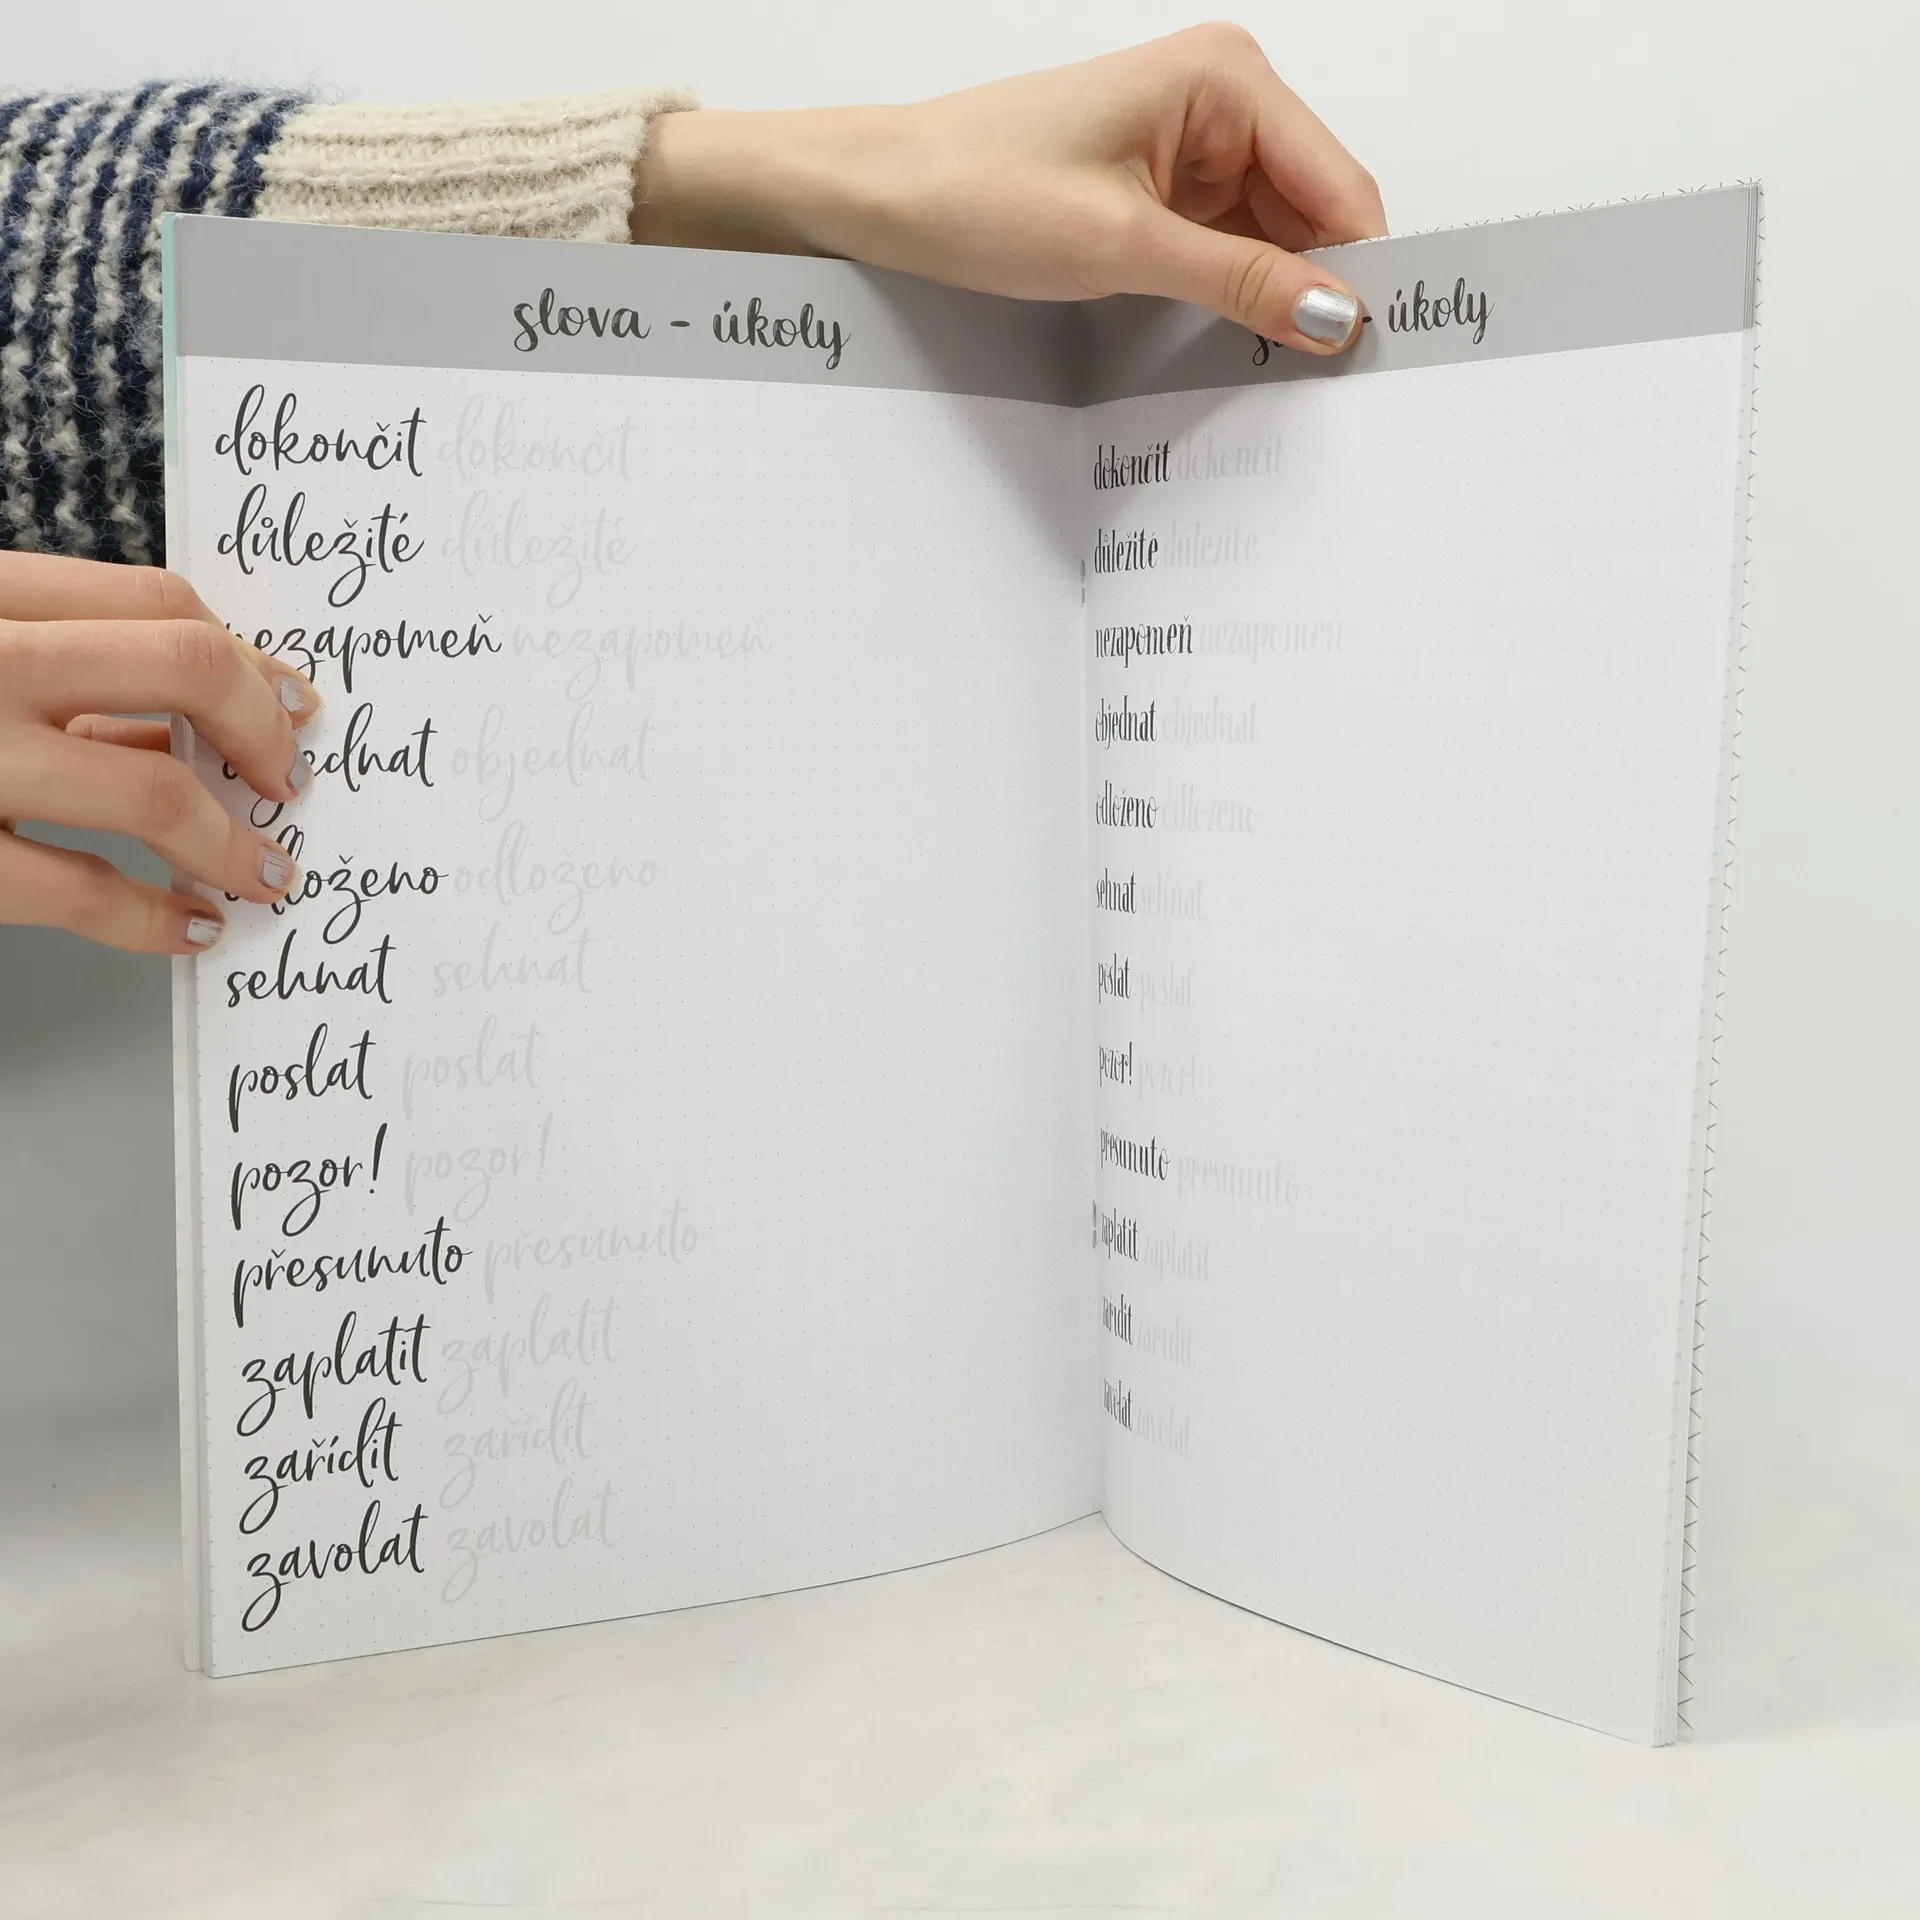 slova - úkoly
dokončit dokončit
důležité důležité
nezapomeň nezapomeň
objednat objednat
odloženo odloženo
sehnat sehnat
poslat poslat
pozor! pozor!
přesunuto přesunuto
zaplatit zaplatit
zařídit zařídit
zavolat zavolat
- úkoly
dokončit dokončit
důležité důležité
nezapomeň nezapomeň
objednat objednat
odloženo odloženo
sehnat sehnat
poslat poslat
pozor! pozor!
přesunuto přesunuto
zaplatit zaplatit
zařídit zařídit
zavolat zavolat